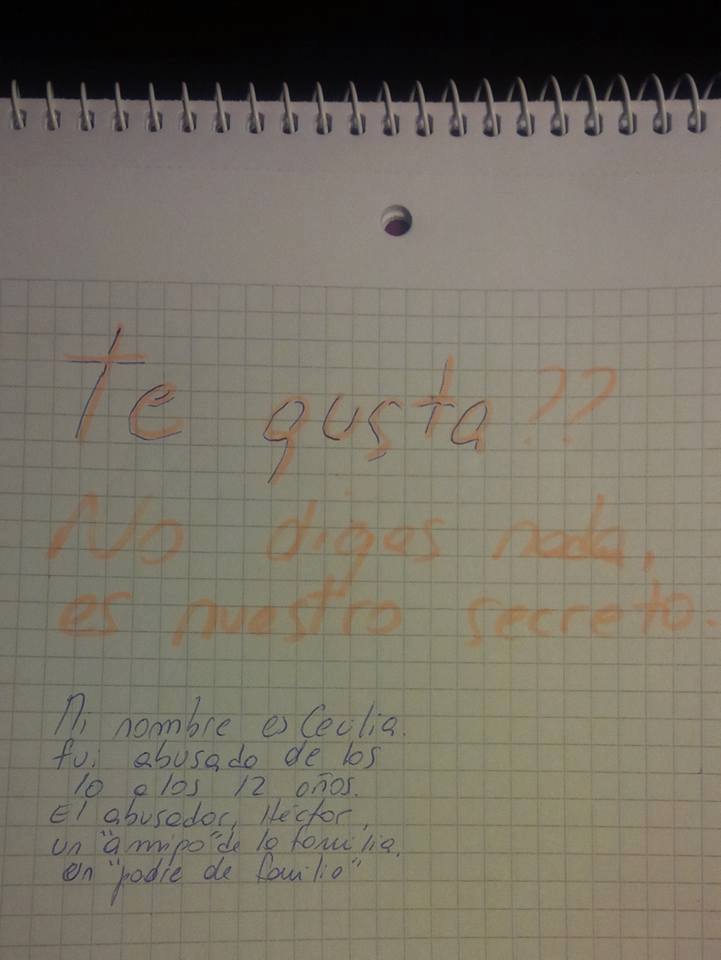 Te gusta??
No digas nada,
es nuestro secreto.
Mi nombre es Cecilia.
fui abusada de los
10 a los 12 años.
El abusador, Héctor,
un "amigo" de la familia.
un "padre de familia"